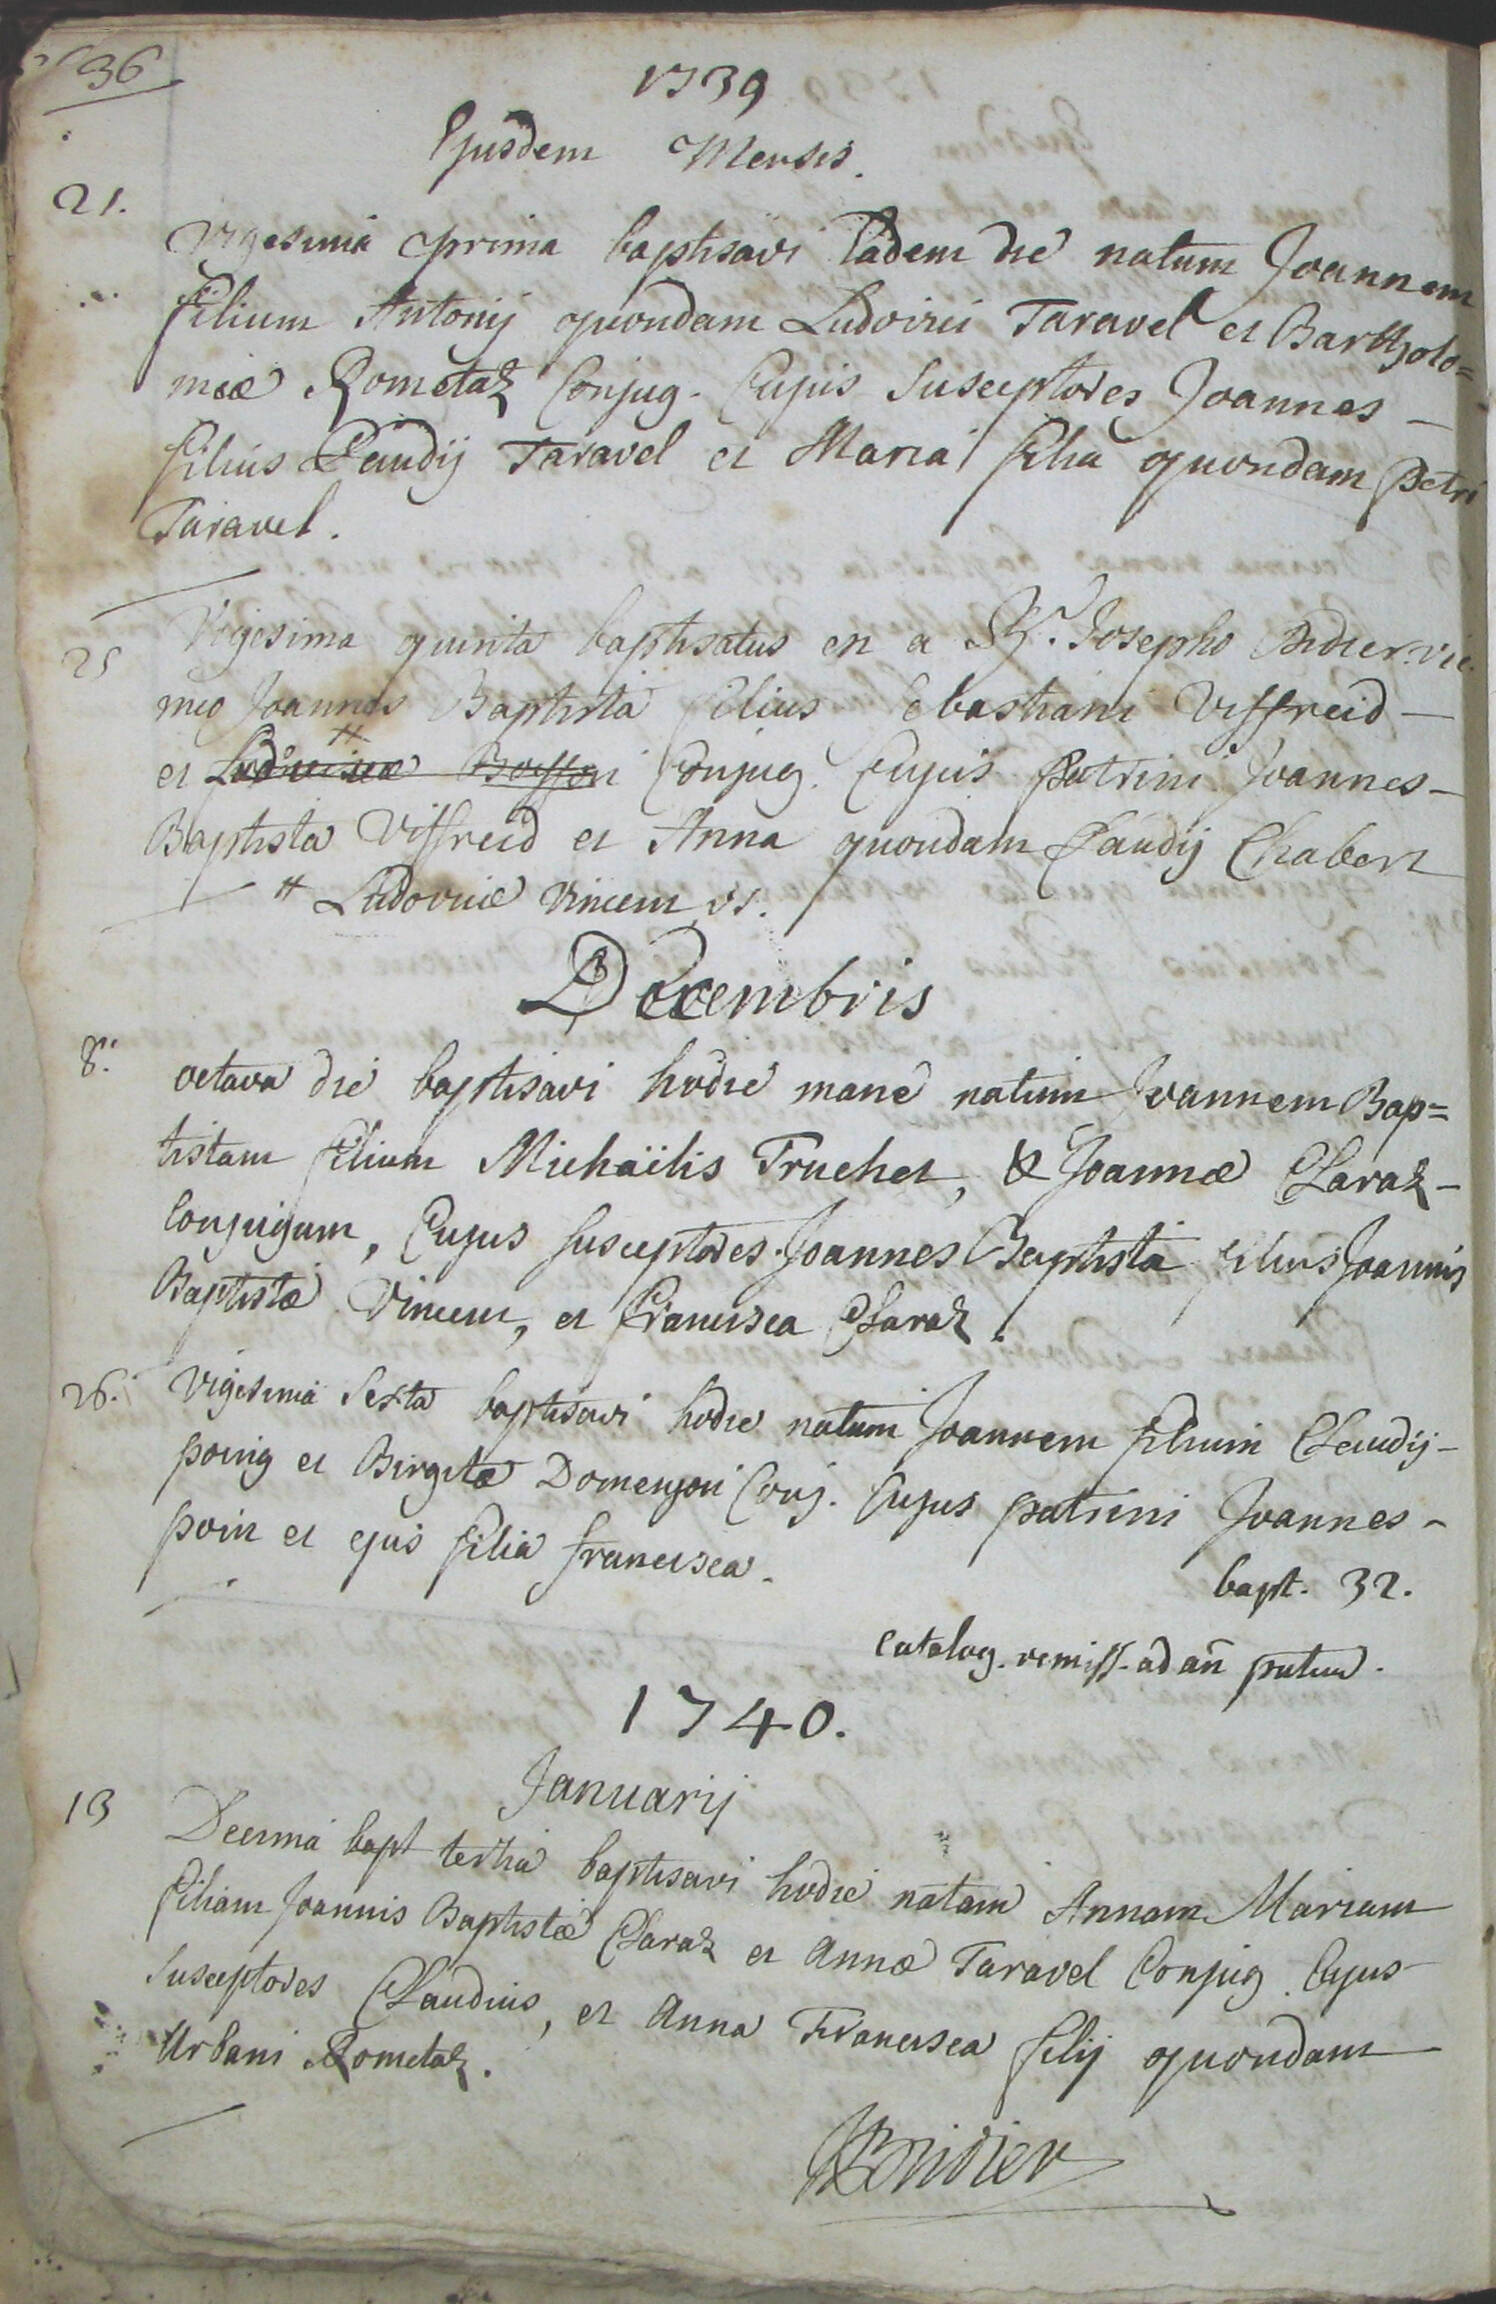 36
1739
Ejusdem Mensis.
21.
Vigesima prima baptisavi Eadem die natum Joannem
filium Antonij quondam Ludovici Taravel et Bartholo=
meæ Rometaz Conjug. Cujus Susceptores Joannes –
filius Claudij Taravel et Maria filia quondam Petri
Taravel.
25
Vigesima quinta baptisatus est a Rdo. Josepho Didier vic.
meo Joannes Baptista filius Sebastiani Viffreid –
et Ludovicæ Boisson Conjug. Cujus Patrini Joannes –
Baptista Viffreid et Anna quondam Claudij Chabert
# Ludovicæ Vincent
Decembris
8.
octava die baptisavi hodie mane natum Joannem Bap=
tistam filium Michaïlis Truchet, & Joannæ Claraz –
Conjugum, Cujus susceptores Joannes Baptista filius Joannis
Baptistæ Vincent, et Francisca Claraz.
26.
Vigesima Sexta baptisavi hodie natum Joannem filium Claudij –
poing et Birgitæ Domenjon Conj. Cujus patrini Joannes –
poin et ejus filia francisca.
bapt. 32.
Catalog. remiss. ad añ
1740.
Januarij
13
Decima bapt tertia baptisavi hodie natam Annam Mariam
filiam Joannis Baptistæ Claraz et Annæ Taravel Conjug. Cujus
Susceptores Claudius, et Anna Francisca filij quondam
Urbani Rometaz.